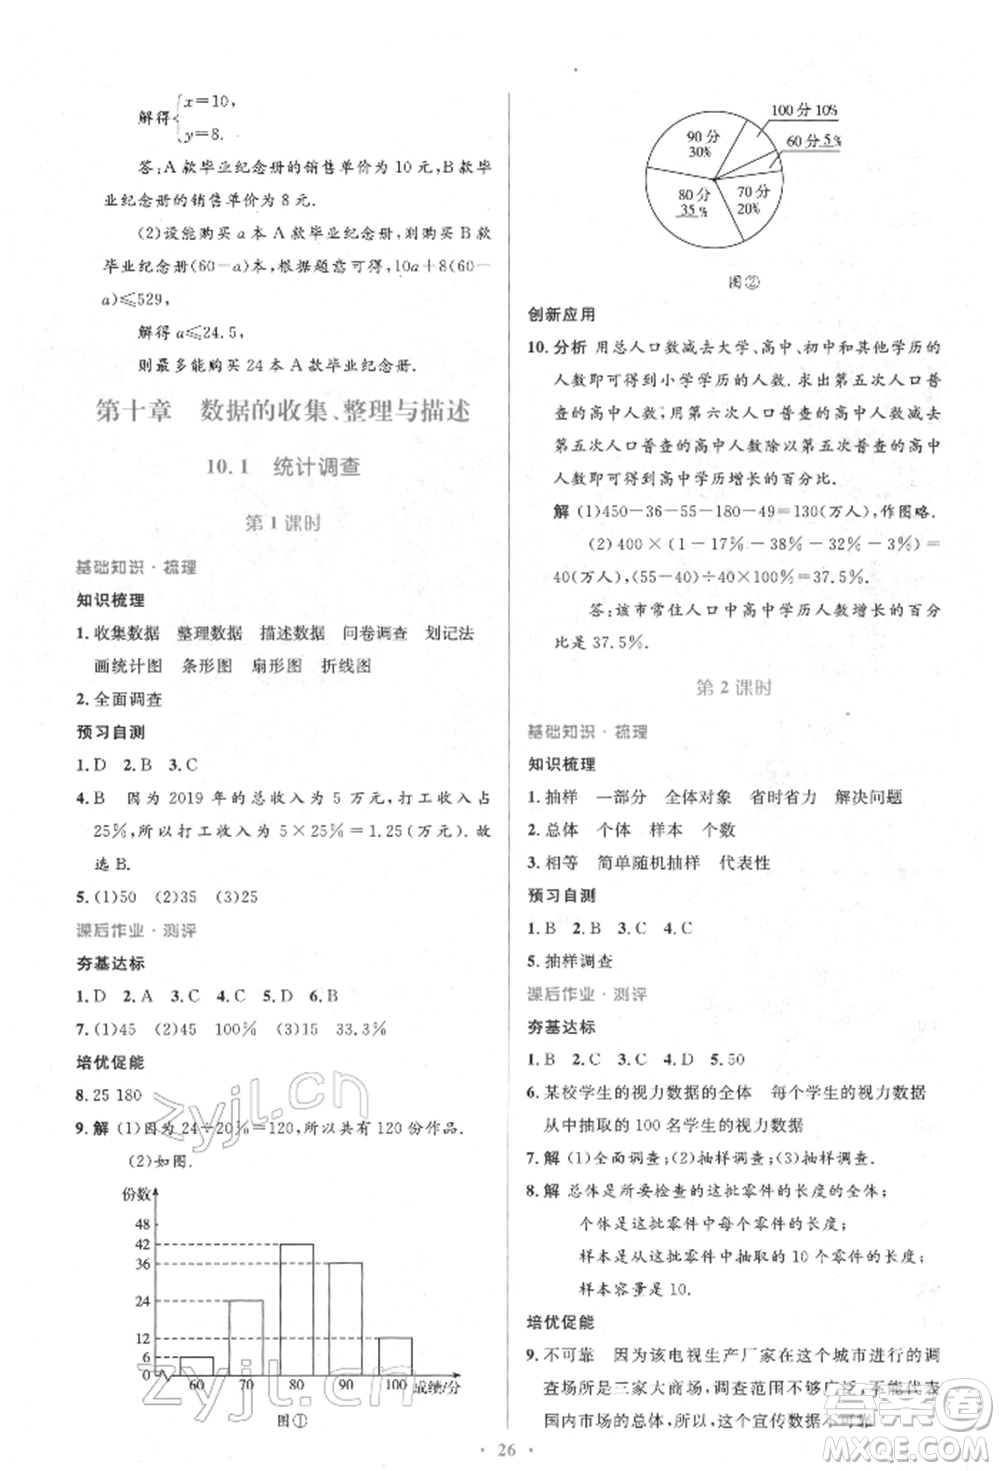 解得{x=10,
y=8.
答:A款毕业纪念册的销售单价为10元,B款毕
业纪念册的销售单价为8元.
(2)设能购买a本A款毕业纪念册,则购买B款
毕业纪念册(60-a)本,根据题意可得,10a+8(60-
a)≤529,
解得a≤24.5,
则最多能购买24本A款毕业纪念册.
第十章 数据的收集、整理与描述
10.1 统计调查
第1课时
基础知识·梳理
知识梳理
1.收集数据 整理数据 描述数据 问卷调查 划记法
画统计图 条形图 扇形图 折线图
2.全面调查
预习自测
1.D 2.B 3.C
4.B 因为2019年的总收入为5万元,打工收入占
25%,所以打工收入为5×25%=1.25(万元).故
选B.
5.(1)50 (2)35 (3)25
课后作业·测评
夯基达标
1.D 2.A 3.C 4.C 5.D 6.C
7.(1)45 (2)45 100% (3)15 33.3%
培优促能
8.25 180
9.解 (1)因为24÷20%=120,所以共有120份作品.
(2)如图.
份数
48
42
36
24
12
6
0
60 70 80 90 100 成绩/分
图①
100分10%
60分5%
90分
30%
80分
35%
70分
20%
图②
创新应用
10.分析 用总人口数减去大学、高中、初中和其他学历的
人数即可得到小学学历的人数.求出第五次人口普
查的高中人数,用第六次人口普查的高中人数减去
第五次人口普查的高中人数除以第五次普查的高中
人数即可得到高中学历增长的百分比.
解 (1)450-36-55-180-49=130(万人),作图略.
(2)400×(1-17%-38%-32%-3%)=
40(万人),(55-40)÷40×100%=37.5%.
答:该市常住人口中高中学历人数增长的百分
比是37.5%.
第2课时
基础知识·梳理
知识梳理
1.抽样 一部分 全体对象 省时省力 解决问题
2.总体 个体 样本 个数
3.相等 简单随机抽样 代表性
预习自测
1.B 2.B 3.C 4.C
5.抽样调查
课后作业·测评
夯基达标
1.B 2.C 3.C 4.D 5.50
6.某校学生的视力数据的全体 每个学生的视力数据
从中抽取的100名学生的视力数据
7.解 (1)全面调查;(2)抽样调查;(3)抽样调查.
8.解 总体是所要检查的这批零件的长度的全体;
个体是这批零件中每个零件的长度;
样本是从这批零件中抽取的10个零件的长度;
样本容量是10.
培优促能
9.不可靠 因为该电视生产厂家在这个城市进行的调
查场所是三家大商场,调查范围不够广泛,不能代表
国内市场的总体,所以,这个宣传数据不可靠.
26
zyjl.cn
zyjl.cn
答案圈
MXQE.COM